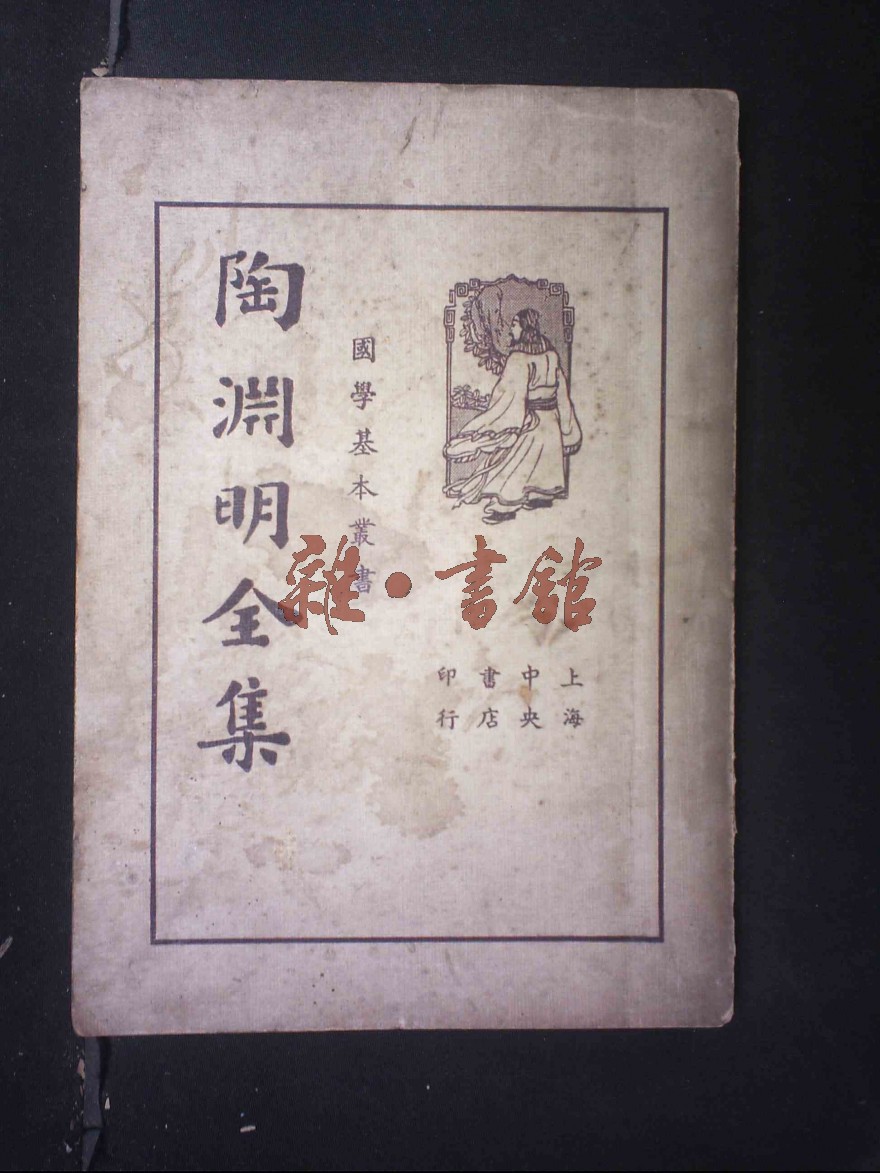 陶淵明全集
國學基本叢書
上海
中央
書店
印行
雜·書館